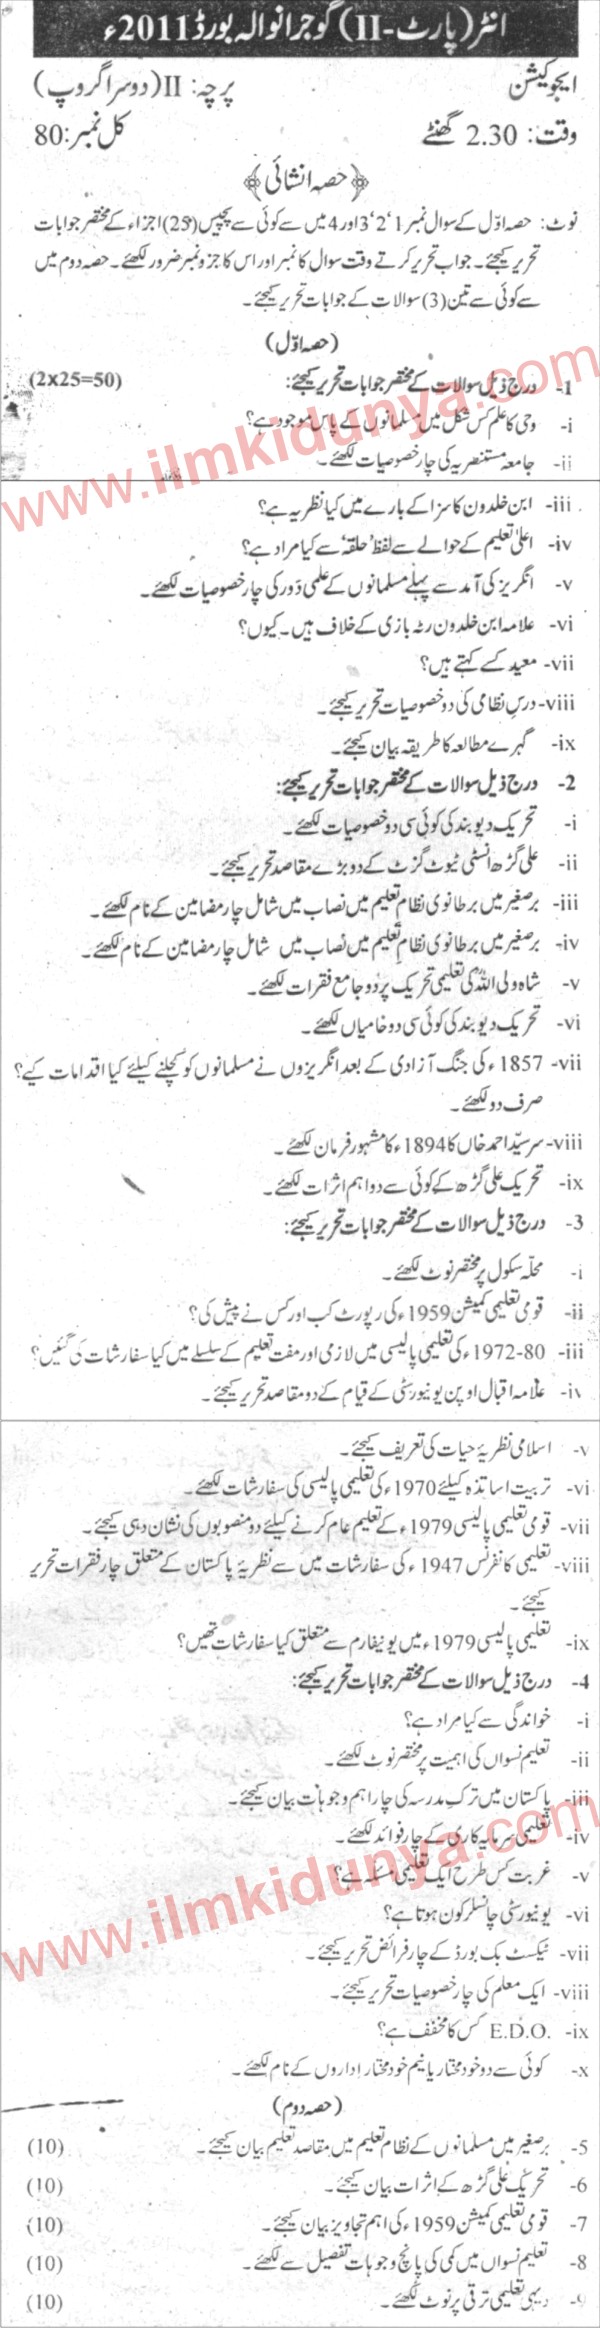 انٹر (پارٹ-II) گوجرانوالہ بورڈ 2011ء
ایجوکیشن پرچہ: II (دوسرا گروپ)
وقت: 2.30 گھنٹے کل نمبر: 80
﴿حصہ انشائی﴾
نوٹ: حصہ اوّل کے سوال نمبر 1‘ 2‘ 3 اور 4 میں سے کوئی سے پچیس (25) اجزاء کے مختصر جوابات
تحریر کیجئے۔ جواب تحریر کرتے وقت سوال کا نمبر اور اس کا جزو نمبر ضرور لکھئے۔ حصہ دوم میں
سے کوئی سے تین (3) سوالات کے جوابات تحریر کیجئے۔
(حصہ اوّل)
1- درج ذیل سوالات کے مختصر جوابات تحریر کیجئے: (2x25=50)
i- وحی کا علم کس شکل میں مسلمانوں کے پاس موجود ہے؟
ii- جامعہ مستنصریہ کی چار خصوصیات لکھئے۔
iii- ابن خلدون کا سزا کے بارے میں کیا نظریہ ہے؟
iv- اعلیٰ تعلیم کے حوالے سے لفظ ’حلقہ‘ سے کیا مراد ہے؟
v- انگریز کی آمد سے پہلے مسلمانوں کے علمی دَور کی چار خصوصیات لکھئے۔
vi- علامہ ابن خلدون رٹہ بازی کے خلاف ہیں۔ کیوں؟
vii- معید کسے کہتے ہیں؟
viii- درسِ نظامی کی دو خصوصیات تحریر کیجئے۔
ix- گہرے مطالعہ کا طریقہ بیان کیجئے۔
2- درج ذیل سوالات کے مختصر جوابات تحریر کیجئے:
i- تحریک دیوبند کی کوئی سی دو خصوصیات لکھئے۔
ii- علی گڑھ انسٹی ٹیوٹ گزٹ کے دو بڑے مقاصد تحریر کیجئے۔
iii- برصغیر میں برطانوی نظام تعلیم میں نصاب میں شامل چار مضامین کے نام لکھئے۔
iv- برصغیر میں برطانوی نظامِ تعلیم میں نصاب میں شامل چار مضامین کے نام لکھئے۔
v- شاہ ولی اللہؒ کی تعلیمی تحریک پر دو جامع فقرات لکھئے۔
vi- تحریک دیوبند کی کوئی سی دو خامیاں لکھئے۔
vii- 1857ء کی جنگ آزادی کے بعد انگریزوں نے مسلمانوں کو کچلنے کیلئے کیا اقدامات کیے؟
صرف دو لکھئے۔
viii- سرسیّد احمد خاں کا 1894ء کا مشہور فرمان لکھئے۔
ix- تحریک علی گڑھ کے کوئی سے دو اہم اثرات لکھئے۔
3- درج ذیل سوالات کے مختصر جوابات تحریر کیجئے:
i- محلّہ سکول پر مختصر نوٹ لکھئے۔
ii- قومی تعلیمی کمیشن 1959ء کی رپورٹ کب اور کس نے پیش کی؟
iii- 1972-80ء کی تعلیمی پالیسی میں لازمی اور مفت تعلیم کے سلسلے میں کیا سفارشات کی گئیں؟
iv- علامہ اقبال اوپن یونیورسٹی کے قیام کے دو مقاصد تحریر کیجئے۔
v- اسلامی نظریۂ حیات کی تعریف کیجئے۔
vi- تربیت اساتذہ کیلئے 1970ء کی تعلیمی پالیسی کی سفارشات لکھئے۔
vii- قومی تعلیمی پالیسی 1979ء کے تعلیم عام کرنے کیلئے دو منصوبوں کی نشان دہی کیجئے۔
viii- تعلیمی کانفرنس 1947ء کی سفارشات میں سے نظریۂ پاکستان کے متعلق چار فقرات تحریر
کیجئے۔
ix- تعلیمی پالیسی 1979ء میں یونیفارم سے متعلق کیا سفارشات تھیں؟
4- درج ذیل سوالات کے مختصر جوابات تحریر کیجئے:
i- خواندگی سے کیا مراد ہے؟
ii- تعلیم نسواں کی اہمیت پر مختصر نوٹ لکھئے۔
iii- پاکستان میں ترکِ مدرسہ کی چار اہم وجوہات بیان کیجئے۔
iv- تعلیمی سرمایہ کاری کے چار فوائد لکھئے۔
v- غربت کس طرح ایک تعلیمی مسئلہ ہے؟
vi- یونیورسٹی چانسلر کون ہوتا ہے؟
vii- ٹیکسٹ بک بورڈ کے چار فرائض تحریر کیجئے۔
viii- ایک معلم کی چار خصوصیات تحریر کیجئے۔
ix- E.D.O. کس کا مخفف ہے؟
x- کوئی سے دو خود مختار یا نیم خود مختار اداروں کے نام لکھئے۔
(حصہ دوم)
5- برصغیر میں مسلمانوں کے نظام تعلیم میں مقاصد تعلیم بیان کیجئے۔ (10)
6- تحریک علی گڑھ کے اثرات بیان کیجئے۔ (10)
7- قومی تعلیمی کمیشن 1959ء کی اہم تجاویز بیان کیجئے۔ (10)
8- تعلیم نسواں میں کمی کی پانچ وجوہات تفصیل سے لکھئے۔ (10)
9- دیہی تعلیمی ترقی پر نوٹ لکھئے۔ (10)
www.ilmkidunya.com
www.ilmkidunya.com